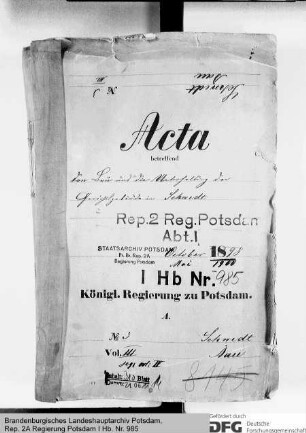 III
Schwedt
Bau
Acta
betreffend
den Bau und die Unterhaltung der
in Schwedt
Rep.2 Reg.Potsdam
Abt.I
STAATSARCHIV POTSDAM
Pr. Br. Rep. 2A
Regierung Potsdam
October 18
Mai
I Hb Nr. 985
Königl. Regierung zu Potsdam.
A.
No 3
Schwedt
Vol. III.
Bau
Brandenburgisches Landeshauptarchiv Potsdam,
Rep. 2A Regierung Potsdam I Hb. Nr. 985
Gefördert durch
DFG Deutsche
Forschungsgemeinschaft